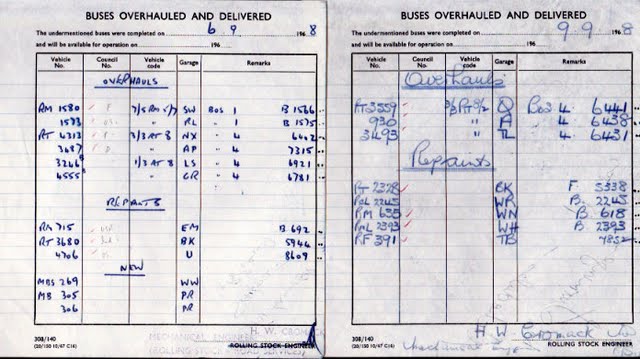 BUSES OVERHAULED AND DELIVERED
The undermentioned buses were completed on 6.9 196 8
and will be available for operation on 196
Vehicle No. Council No. Vehicle code Garage Remarks
OVERHAULS
RM 1580 SW BOS 1 B 1566
1573 RL " 1 B 1575
RT 4313 3/3 RT 8 NX " 4 6402
3487 " AP " 4 7315
3246 1/3 RT 8 LS " 4 6921
4555 " GR " 4 6781
REPAINTS
RM 715 EM B 692
RT 3680 BK 5944
4706 U 8609
NEW
MBS 269 WW
MB 305 PR
306 PR
308/140
(20/150 10/67 C16)
MECHANICAL ENGINEER
(ROLLING STOCK ROAD SERVICES)
ROLLING STOCK ENGINEER
BUSES OVERHAULED AND DELIVERED
The undermentioned buses were completed on 9 9 196 8
and will be available for operation on 196
Vehicle No. Council No. Vehicle code Garage Remarks
Overhauls
RT 3559 Q Bos 4 6441
930 " A " 4. 6438
3493 " TL " 4. 6431
Repaints
RT 2328 BK F 5338
RML 2245 WR B. 2245
RM 635 WN B. 618
RML 2393 WH B 2393
RF 391 TB
308/140
(20/150 10/67 C16)
H. W. Cromack
ROLLING STOCK ENGINEER